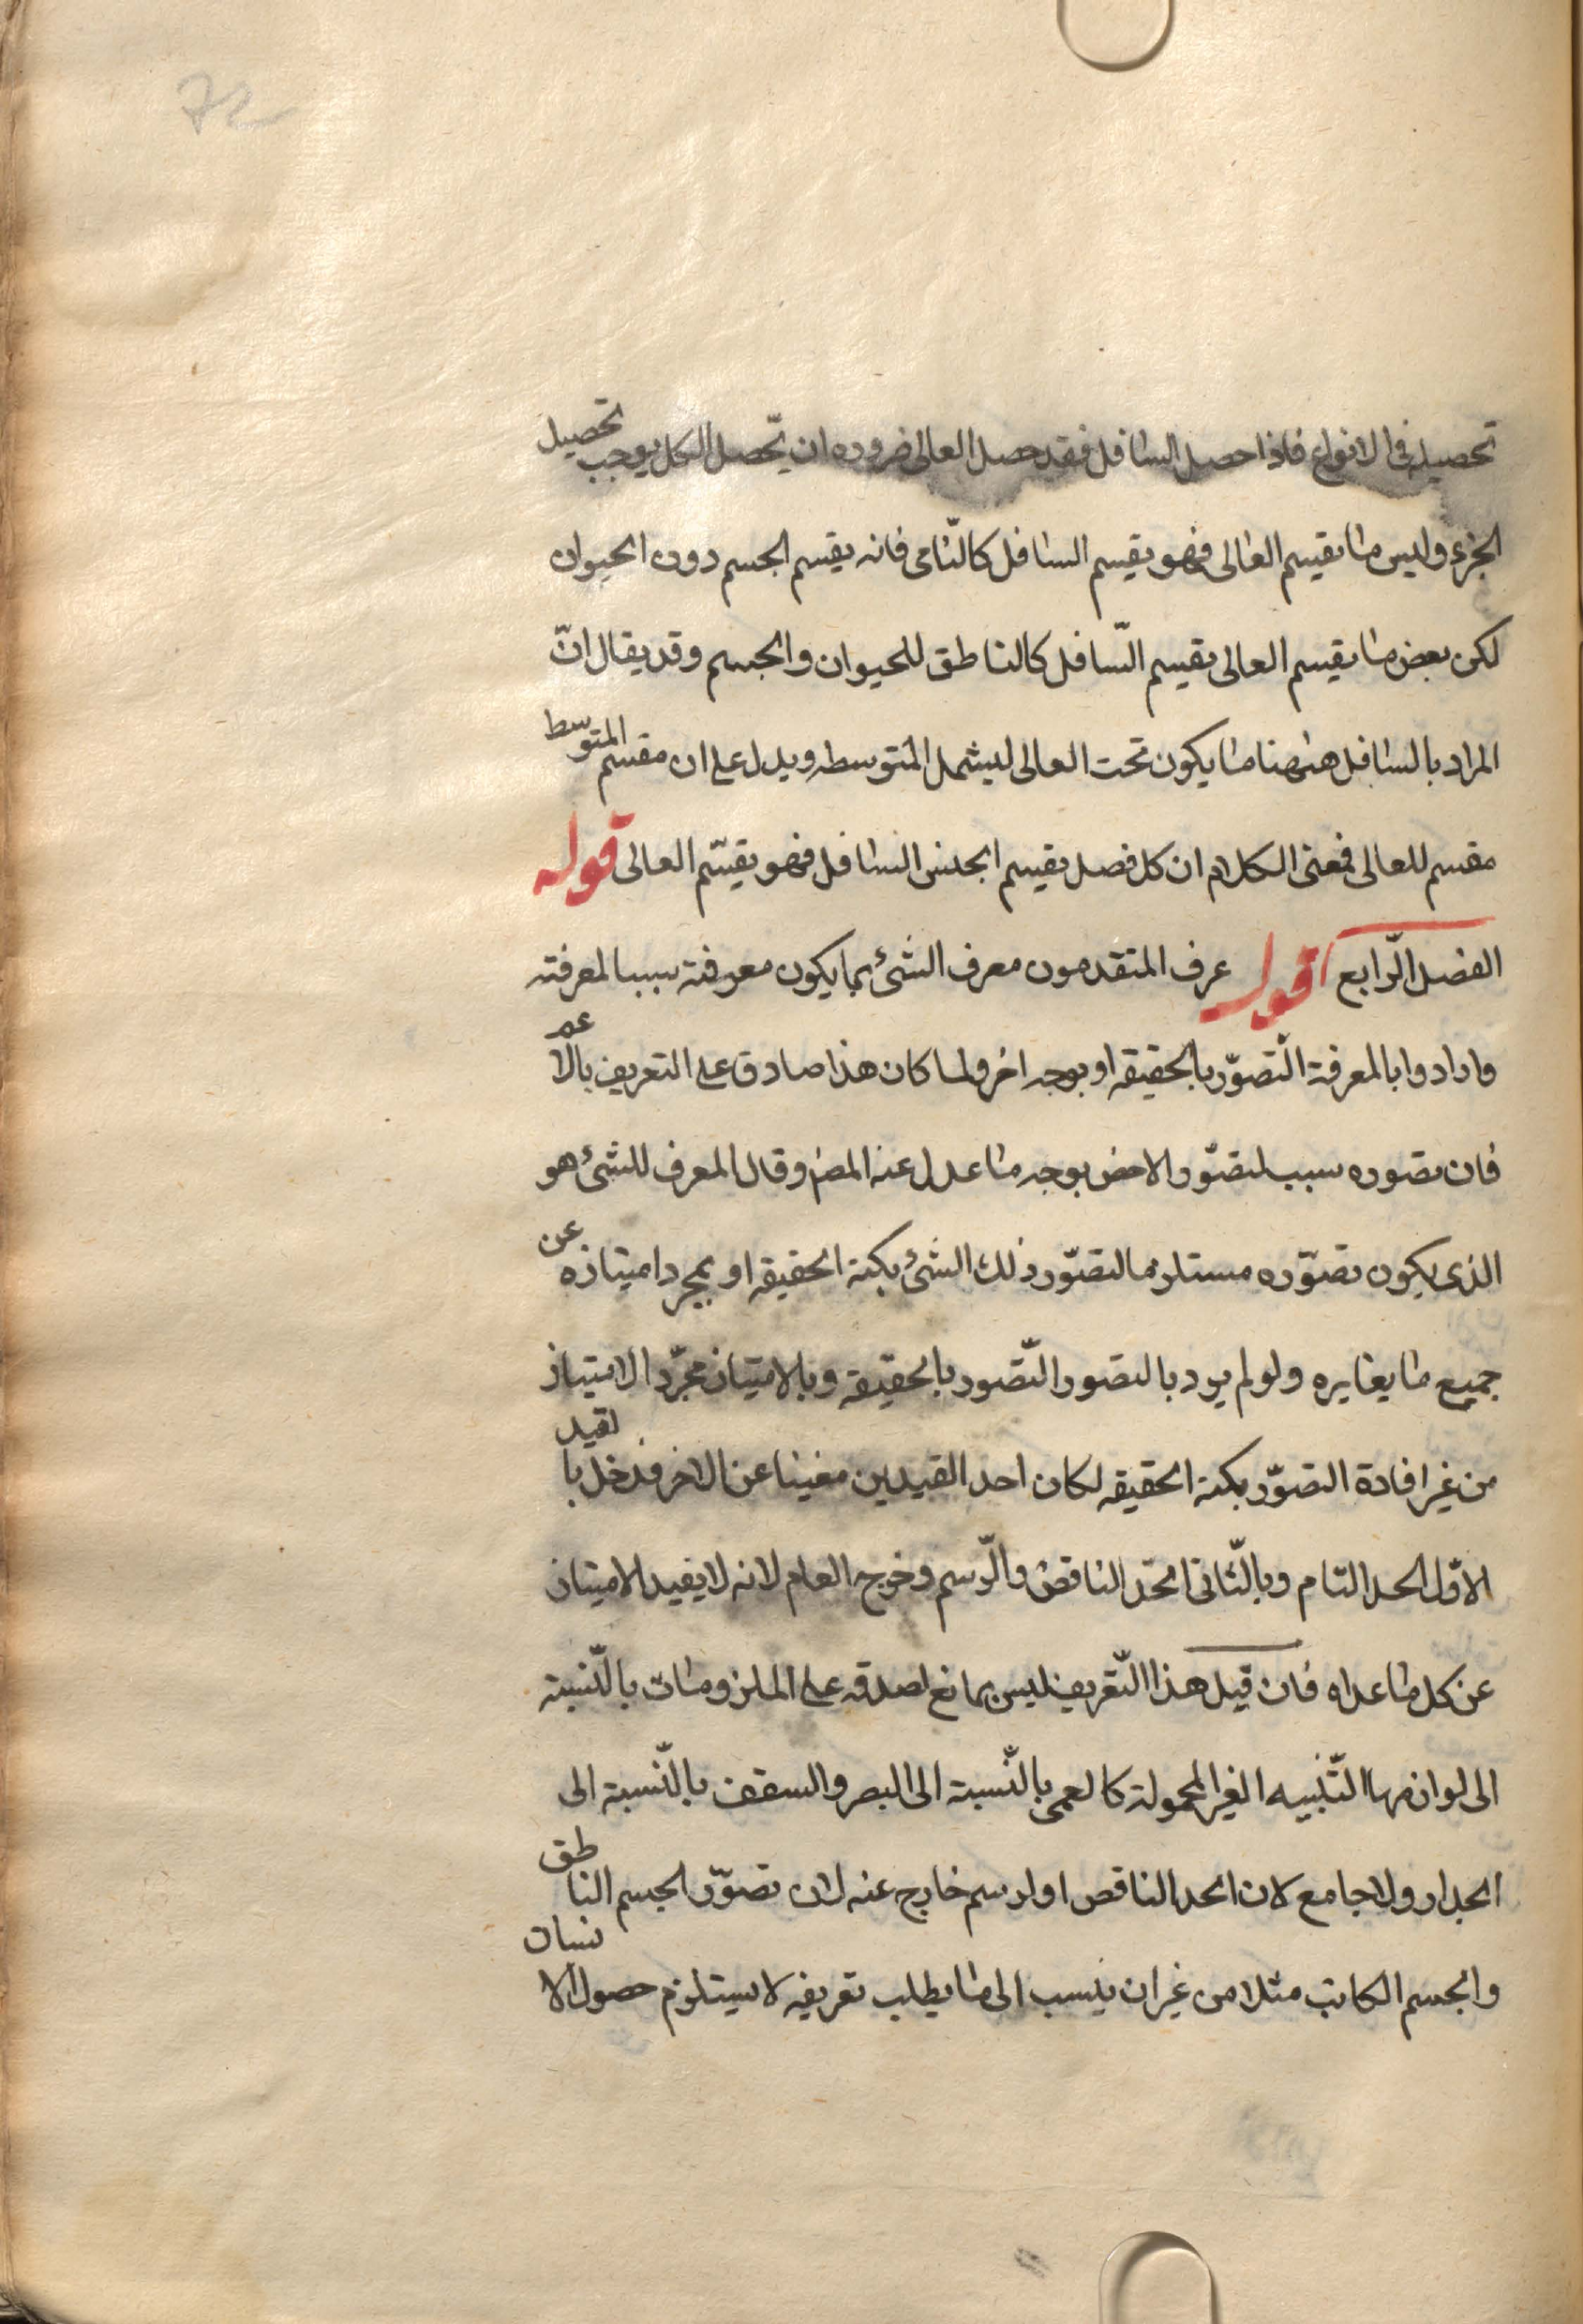 72
تحصيله فى الانواع فاذا حصل السافل فقد حصل العالى ضروره ان تحصل الكل يوجب تحصيل
الجزء وليس ما يقسم العالى فهو يقسم السافل كالنّامى فانه يقسم الجسم دون الحيوان
لكن بعض ما يقسم العالى يقسم السّافل كالناطق للحيوان والجسم وقد يقال انّ
المراد بالسافل هٰهنا ما يكون تحت العالى ليشمل المتوسطه ويدل على ان مقسم المتوسط
مقسم للعالى فمعنى الكلام ان كل فصل يقسم الجنس السافل فهو يقسّم العالى قوله
الفصل الرّابع اقول عرف المتقدمون معرف الشئ بما يكون معرفته سببا لمعرفته
وارادوا بالمعرفة التّصوّر بالحقيقه او بوجه اخر ولما كان هذا صادق على التعريف بالاعم
فان تصوره سبب لتصوّر الاخص بوجه ما عدل عنه المصّ وقال المعرف للشئ هو
الذى يكون تصوّره مستلزما لتصوّر ذلك الشئ بكنه الحقيقه او بمجرد امتيازه عن
جميع ما يغايره ولو لم يرد بالتصور التّصور بالحقيقه وبالامتياز مجرّد الامتياز
من غير افادة التصوّر بكنه الحقيقه لكان احد القيدين مغنيا عن الاخر فدخل بالقيد
الاوّل الحد التام وبالثّانى الحدّ الناقص والرّسم وخرج العام لانه لا يفيد الامتياز
عن كل ما عداه فان قيل هذا التّعريف ليس بمانع لصدقه على الملزومات بالنّسبة
الى لوازمها البّينه الغير المحمولة كالعمى بالنّسبة الى البصر والسقف بالنّسبة الى
الجدار ولا جامع لان الحد الناقص او لرسم خارج عنه لان تصوّر الجسم الناطق
والجسم الكاتب مثلا من غير ان ينسب الى ما يطلب تعريفه لا يستلزم حصول الانسان